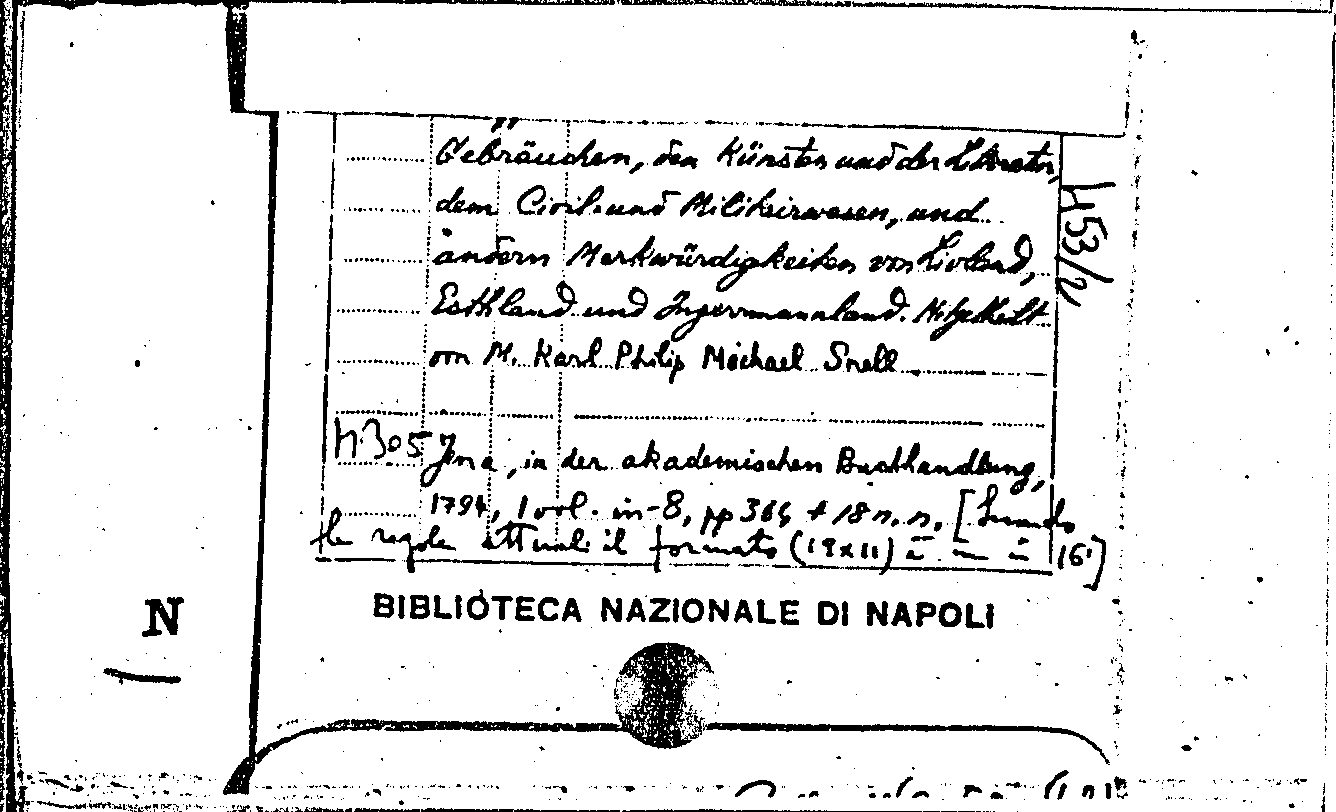 Gebräuchen, den Künsten und der Literatur,
dem Civil- und Militairwesen, und
andern Merkwürdigkeiten von Livland,
Esthland und Ingermannland. Mitgetheilt
von M. Karl Philip Michael Snell
h53/2
h305 Jena, in der akademischen Buchhandlung,
1794, 1 vol. in-8, pp 364 + 18 n. n. [Secondo
le regole attuali il formato (19x11) è in 16°]
BIBLIOTECA NAZIONALE DI NAPOLI
N